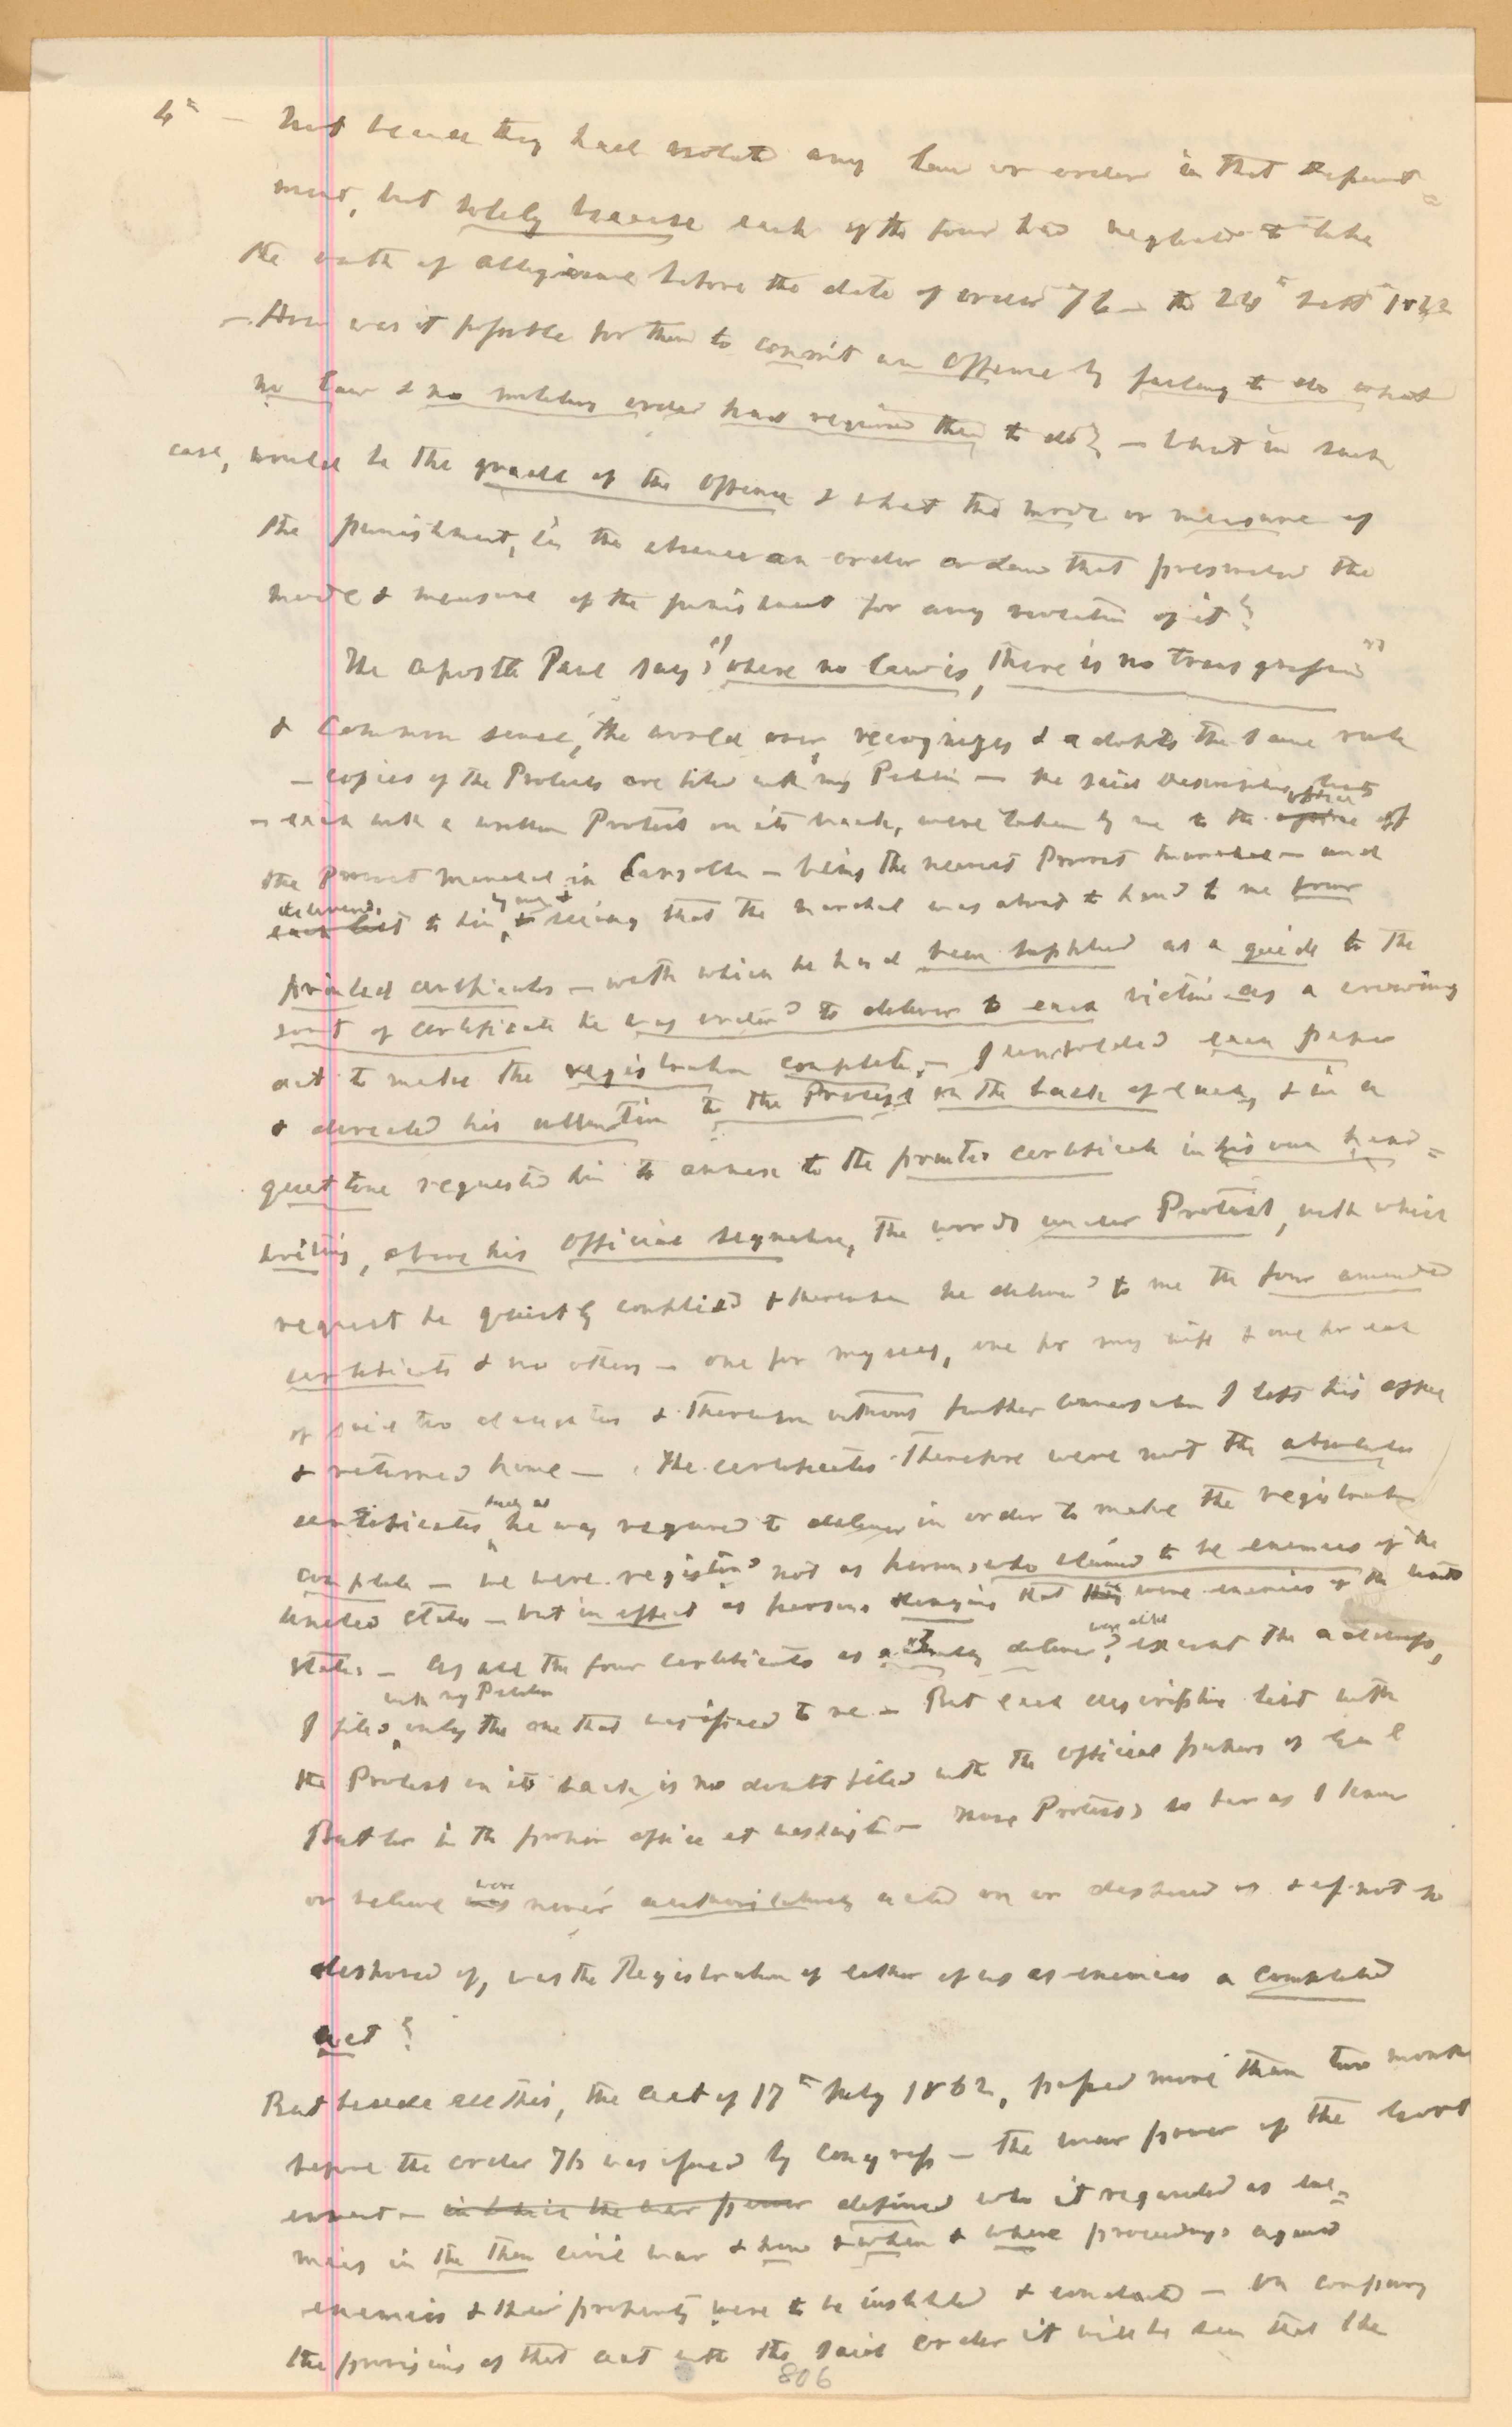 4th — Not because they had violated any law or order in that depart=
ment, but solely because each of the four had neglected to take
the oath of allegiance before the date of order 76 — the 24th Sept 1862
— How was it possible for them to commit an offence by failing to do what
no law & no military order had required them to do? — What in such
case, would be the grade of the offence & what the mode or measure of
the punishment, in the absence an order or law that prescribed the
mode & measure of the punishment for any violation of it?
The apostle Paul says "where no law is, there is no transgression"
& common sense, the world over, recognizes & adopts the same rule
— copies of the Protests are filed with my Petition — the said descriptive lists
— each with a written Protest on its back, were taken by me to the office of
the Provost Marshal in Carrollton — being the nearest Provost Marshal — and
each list delivered to him, by me & seeing that the Marshal was about to hand to me four
printed certificates — with which he had been supplied as a guide to the
sort of certificate he was ordered to deliver to each victim as a crowning
act to make the registration complete, — I unfolded each paper
& directed his attention to the Protest on the back of each, & in a
quiet tone requested him to annex to the printed certificate in his own hand=
writing, above his official signature, the words under Protest, with which
request he quietly complied & thereupon he delivered to me the four amended
certificates & no others — one for myself, one for my wife & one for each
of said two daughters & thereupon without further conversation I left his office
& returned home — The certificates therefore were not the absolute
certificates such as he was required to deliver in order to make the registration
complete — we were registered not as persons who claimed to be enemies of the
United States — but in effect as persons denying that they were enemies of the United
States — As all the four certificates as actually delivered, were alike except the address,
I filed with my Petition only the one that was issued to me — But each descriptive list with
the Protest on its back, is no doubt filed with the official papers of Genl
Butler in the proper office at Washington — Those Protests so far as I know
or believe was were never authoritatively acted on or disposed of & if not so
disposed of, was the Registration of either of us as enemies a completed
act?
But beside all this, the act of 17th July 1862, passed more than two months
before the order 76 was issued by Congress — the war power of the Govern
ernment — in which the war power defined who it regarded as ene=
mies in the then civil war & how & when & where proceedings against
enemies & their property were to be instituted & conducted — On comparing
the provisions of that act with the said order it will be seen that the
806